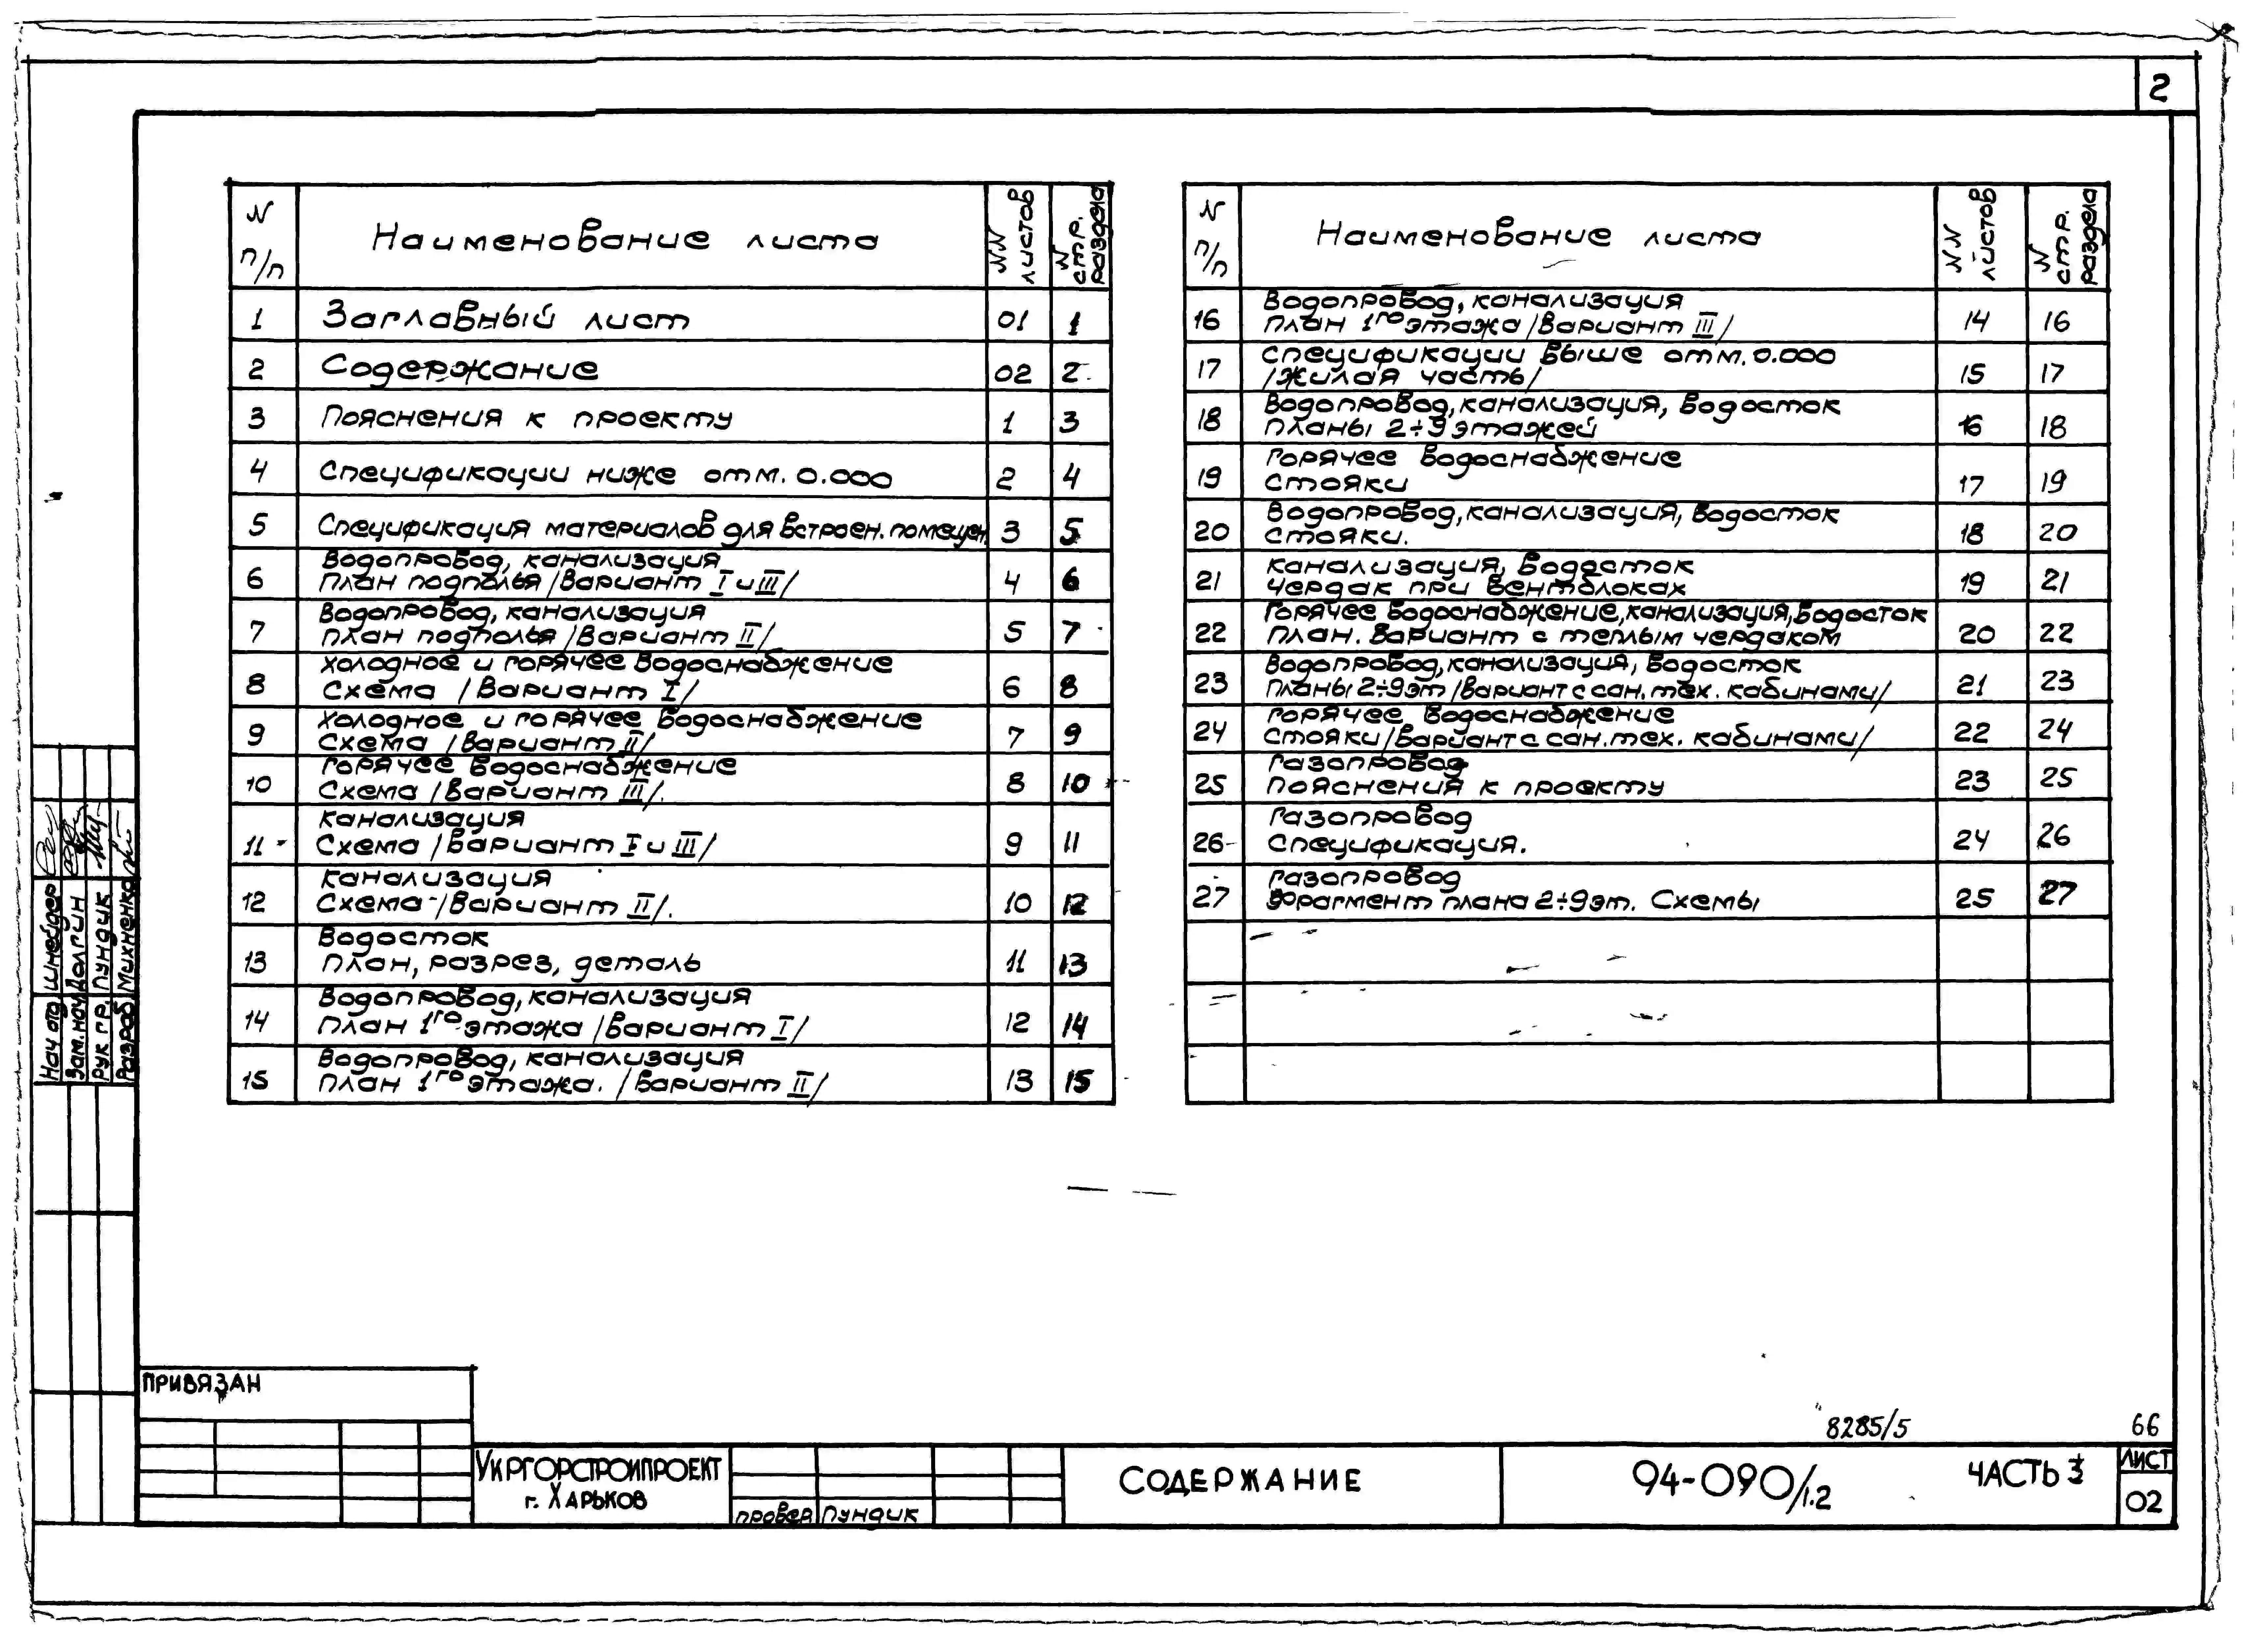 2
N п/п Наименование листа NN листов N стр. раздела
1 Заглавный лист 01 1
2 Содержание 02 2
3 Пояснения к проекту 1 3
4 Спецификации ниже отм. 0.000 2 4
5 Спецификация материалов для встроен. помещен. 3 5
Водопровод, канализация
6 План подполья /Вариант I и III/ 4 6
Водопровод, канализация
7 План подполья /Вариант II/ 5 7
Холодное и горячее водоснабжение
8 Схема /Вариант I/ 6 8
Холодное и горячее водоснабжение
9 Схема /Вариант II/ 7 9
Горячее водоснабжение
10 Схема /Вариант III/. 8 10
Канализация
11 Схема /Вариант I и III/ 9 11
Канализация
12 Схема /Вариант II/. 10 12
Водосток
13 План, разрез, деталь 11 13
Водопровод, канализация
14 План 1го этажа /Вариант I/ 12 14
Водопровод, канализация
15 План 1го этажа. /Вариант II/ 13 15
N п/п Наименование листа NN листов N стр. раздела
Водопровод, канализация
16 План 1го этажа /Вариант III/ 14 16
Спецификации выше отм. 0.000
17 /Жилая часть/ 15 17
Водопровод, канализация, водосток
18 Планы 2÷9 этажей 16 18
Горячее водоснабжение
19 Стояки 17 19
Водопровод, канализация, водосток
20 Стояки. 18 20
Канализация, водосток
21 Чердак при вентблоках 19 21
Горячее водоснабжение, канализация, водосток
22 План. Вариант с теплым чердаком 20 22
Водопровод, канализация, водосток
23 Планы 2÷9 эт /Вариант с сан. тех. кабинами/ 21 23
Горячее водоснабжение
24 Стояки /Вариант с сан. тех. кабинами/ 22 24
Газопровод
25 Пояснения к проекту 23 25
Газопровод
26 Спецификация. 24 26
Газопровод
27 Фрагмент плана 2÷9 эт. Схемы 25 27
Нач отд Шнейдер
Зам. нач Долгин
Рук гр. Пундик
Разраб Михненко
ПРИВЯЗАН
8285/5 66
УКРГОРСТРОЙПРОЕКТ
г. ХАРЬКОВ
провер Пундик
СОДЕРЖАНИЕ
94-090/1.2
ЧАСТЬ 3
ЛИСТ
02